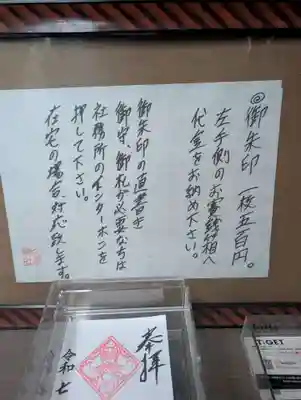 ◎御朱印 一枚五百円。
左手側のお賽銭箱へ
代金をお納め下さい。
御朱印の直書き
御守、御札が必要な方は
社務所のインターホンを
押して下さい。
在宅の場合、対応致します。
奉拝
令和七
TiGET